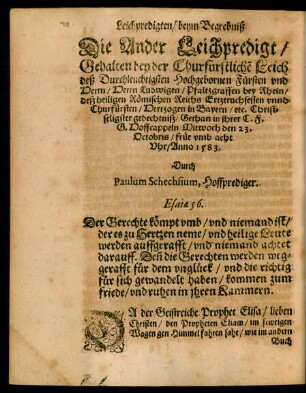 Leichpredigten/ beym Begrebniß
Die Ander Leichpredigt/
Gehalten bey der Churfürstlichē Leich
deß Durchleuchtigsten Hochgebornen Fürsten vnd
Herrn/ Herrn Ludwigen/ Pfaltzgraffen bey Rhein/
deß heiligen Römischen Reichs Ertztruchsessen vnnd
Churfürsten/ Hertzogen in Bayern/ etc. Christ-
seligster gedechtniß/ Gethan in jhrer C. F.
G. Hoffcappeln Mitwoch den 23.
Octobris/ früe vmb acht
Vhr/ Anno 1583.
Durch
Paulum Schechsium, Hoffprediger.
Esaiæ 56.
Der Gerechte kömpt vmb/ vnd niemand ist/
der es zu Hertzen neme/ vnd heilige Leute
werden auffgerafft/ vnd niemand achtet
darauff. Deñ die Gerechten werden weg-
gerafft für dem vnglück/ vnd die richtig
für sich gewandelt haben/ kommen zum
friede/ vnd ruhen in jhren Kammern.
DA der Geistreiche Prophet Elisa/ lieben
Christen/ den Propheten Eliam/ im fewrigen
Wagen gen Himmel fahren sahe/ wie im andern
Buch